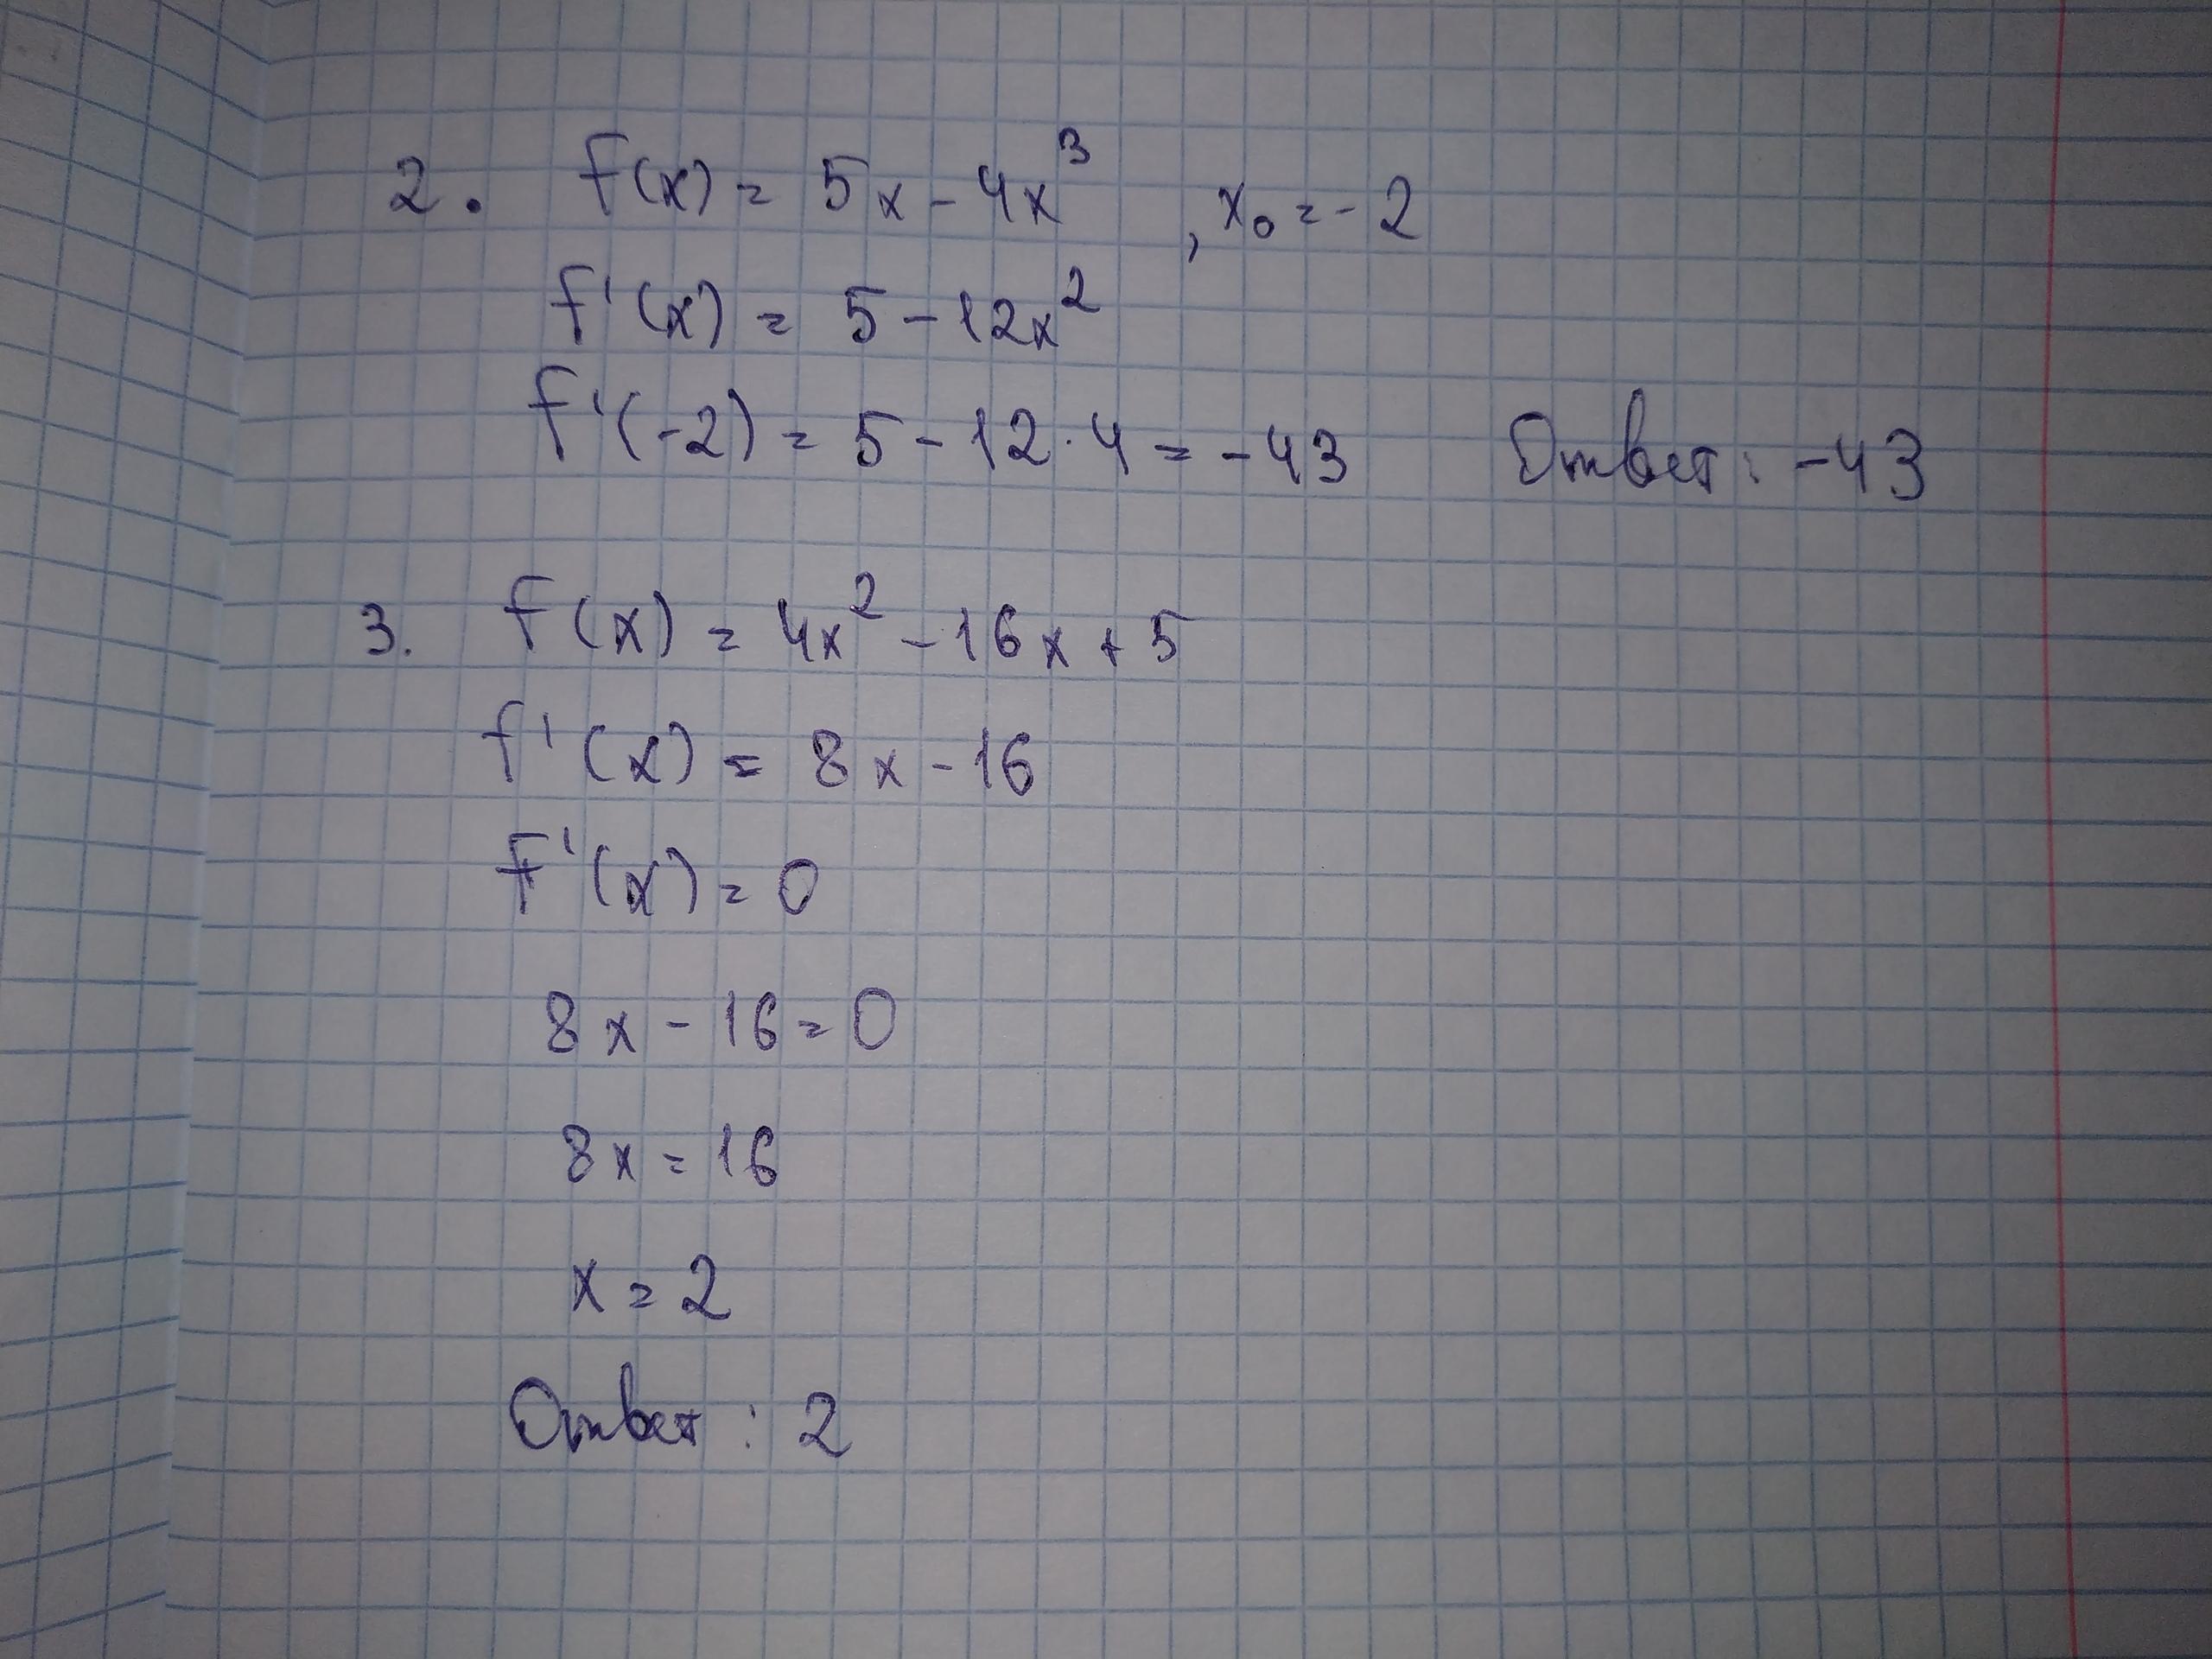 2. f(x) = 5x - 4x³, x₀ = -2
f'(x) = 5 - 12x²
f'(-2) = 5 - 12·4 = -43 Ответ: -43
3. f(x) = 4x² - 16x + 5
f'(x) = 8x - 16
f'(x) = 0
8x - 16 = 0
8x = 16
x = 2
Ответ: 2